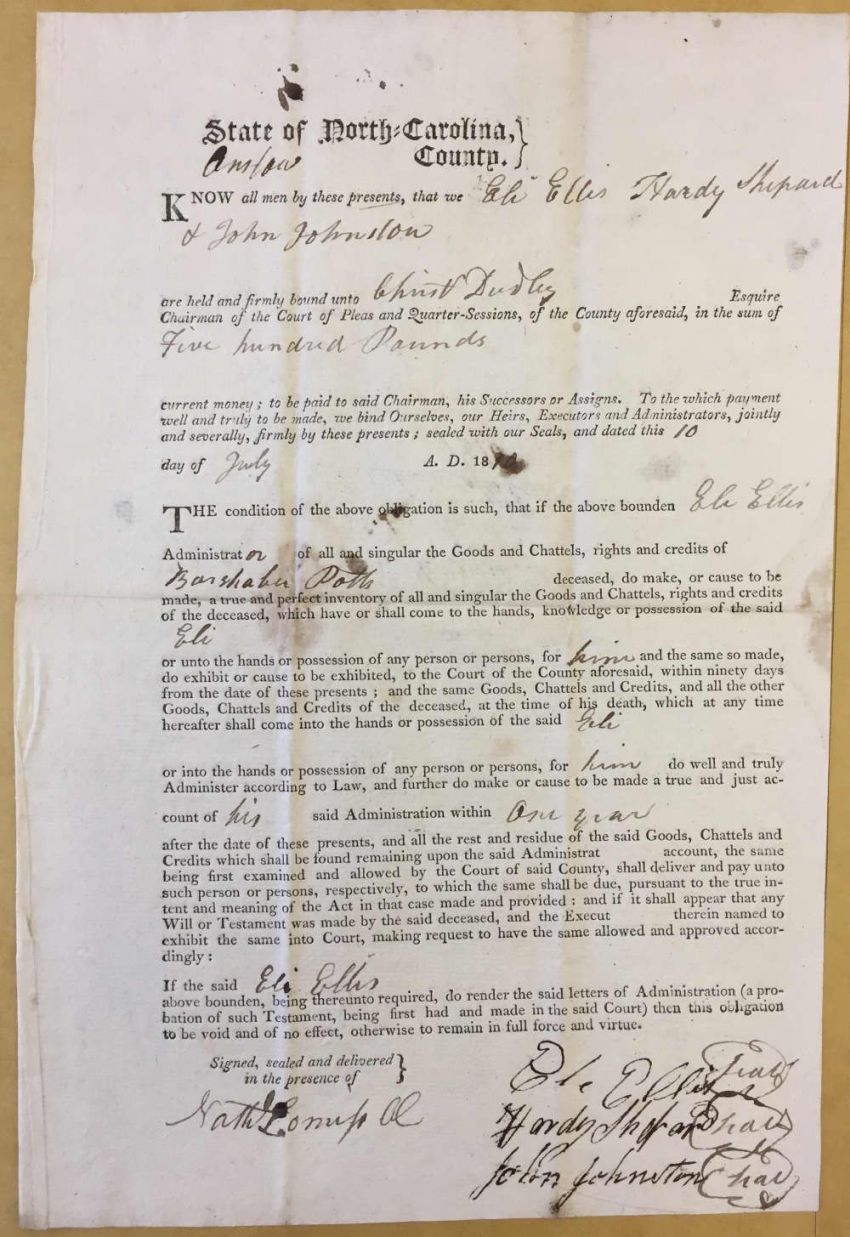 State of North-Carolina,
Onslow County.
KNOW all men by these presents, that we Eli Ellis Hardy Shepard
& John Johnston
are held and firmly bound unto Christ Dudley Esquire
Chairman of the Court of Pleas and Quarter-Sessions, of the County aforesaid, in the sum of
Five hundred Pounds
current money; to be paid to said Chairman, his Successors or Assigns. To the which payment
well and truly to be made, we bind Ourselves, our Heirs, Executors and Administrators, jointly
and severally, firmly by these presents; sealed with our Seals, and dated this 10
day of July A. D. 18
THE condition of the above obligation is such, that if the above bounden Eli Ellis
Administrator of all and singular the Goods and Chattels, rights and credits of
Barshaber Potts deceased, do make, or cause to be
made, a true and perfect inventory of all and singular the Goods and Chattels, rights and credits
of the deceased, which have or shall come to the hands, knowledge or possession of the said
Eli
or unto the hands or possession of any person or persons, for him and the same so made,
do exhibit or cause to be exhibited, to the Court of the County aforesaid, within ninety days
from the date of these presents; and the same Goods, Chattels and Credits, and all the other
Goods, Chattels and Credits of the deceased, at the time of his death, which at any time
hereafter shall come into the hands or possession of the said Eli
or into the hands or possession of any person or persons, for him do well and truly
Administer according to Law, and further do make or cause to be made a true and just ac-
count of his said Administration within One year
after the date of these presents, and all the rest and residue of the said Goods, Chattels and
Credits which shall be found remaining upon the said Administrat account, the same
being first examined and allowed by the Court of said County, shall deliver and pay unto
such person or persons, respectively, to which the same shall be due, pursuant to the true in-
tent and meaning of the Act in that case made and provided: and if it shall appear that any
Will or Testament was made by the said deceased, and the Execut therein named to
exhibit the same into Court, making request to have the same allowed and approved accor-
dingly:
If the said Eli Ellis
above bounden, being thereunto required, do render the said letters of Administration (a pro-
bation of such Testament, being first had and made in the said Court) then this obligation
to be void and of no effect, otherwise to remain in full force and virtue.
Signed, sealed and delivered
in the presence of
Eli Ellis (seal)
Nath
Hardy Shepard (seal)
John Johnston (seal)